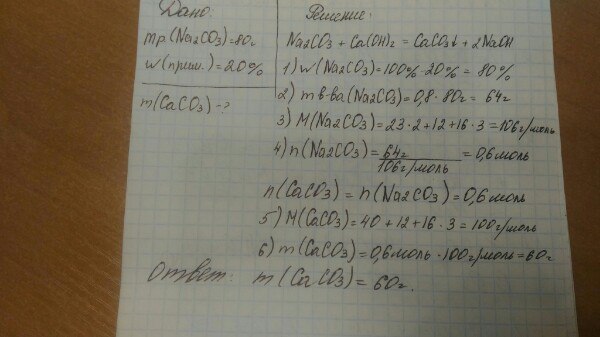 Дано:
mр(Na2CO3)=80г
w(прим.)=20%
m(CaCO3)-?
Решение:
Na2CO3 + Ca(OH)2 = CaCO3↓ + 2NaOH
1) w(Na2CO3)=100%-20%=80%
2) m в-ва(Na2CO3)=0,8·80г=64г
3) M(Na2CO3)=23·2+12+16·3=106г/моль
4) n(Na2CO3)=64г/106г/моль=0,6моль
n(CaCO3)=n(Na2CO3)=0,6моль
5) M(CaCO3)=40+12+16·3=100г/моль
6) m(CaCO3)=0,6моль·100г/моль=60г
Ответ: m(CaCO3)=60г.